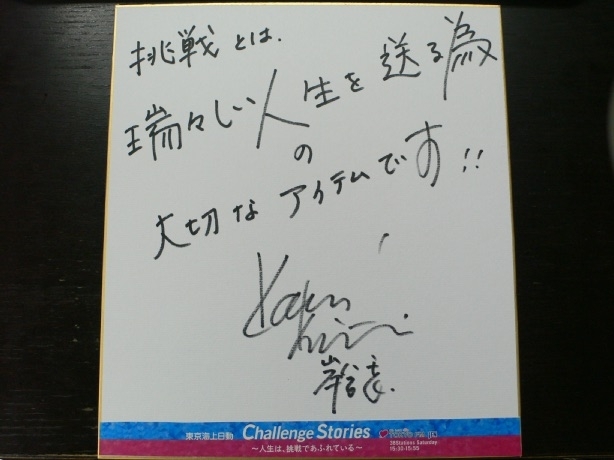 挑戦とは.
瑞々しい人生を送る為
の
大切なアイテムです!!
東京海上日動 Challenge Stories TOKYO FM JFN
38Stations Saturday
15:30-15:55
～人生は、挑戦であふれている～